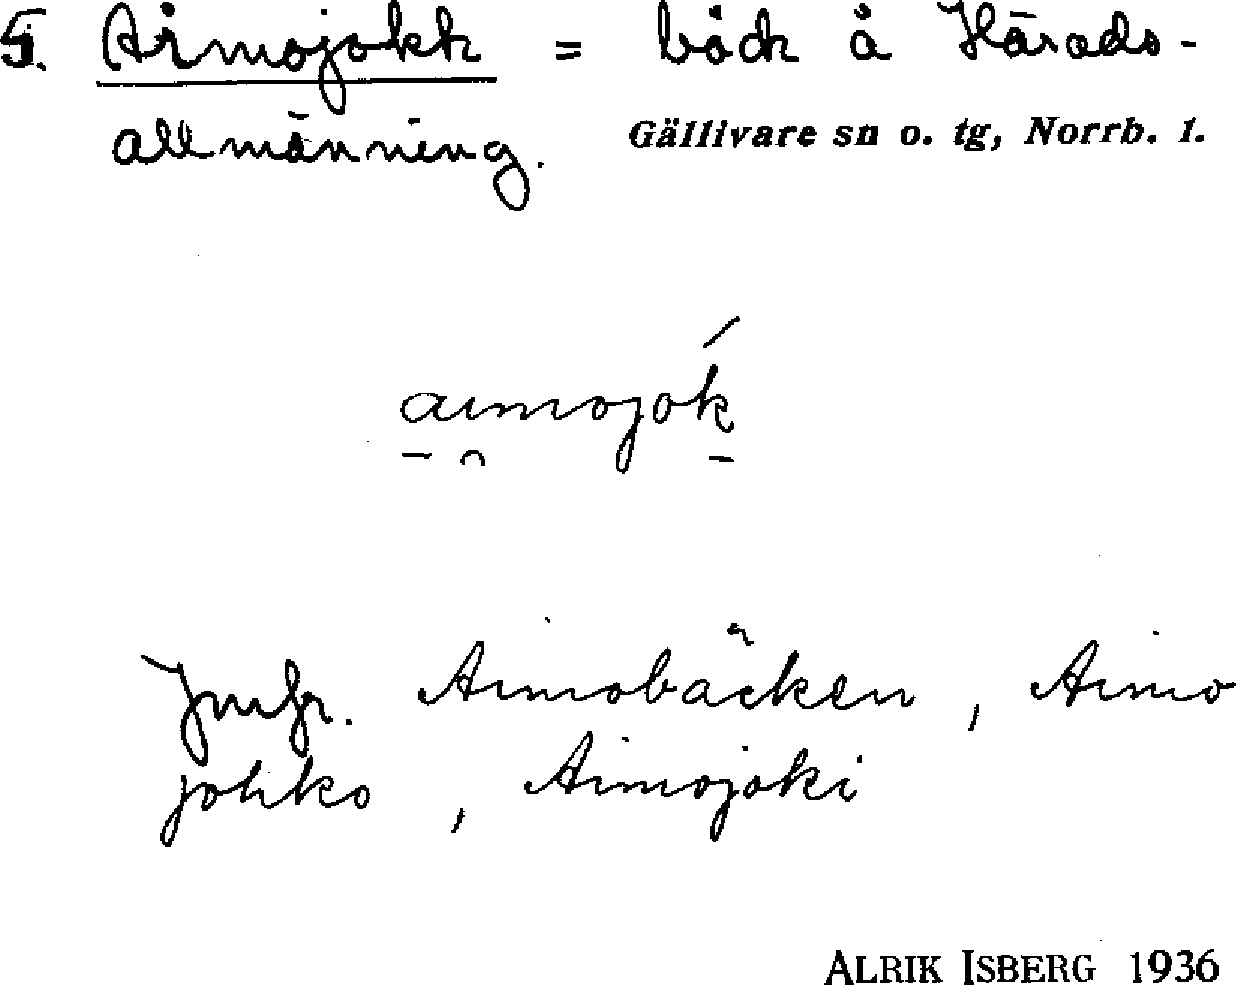 5. Aimojokk = bäck å Härads-
allmänning. Gällivare sn o. tg, Norrb. l.
aimojok
Jmfr. Aimobäcken, Aimo
johko, Aimojoki
ALRIK ISBERG 1936